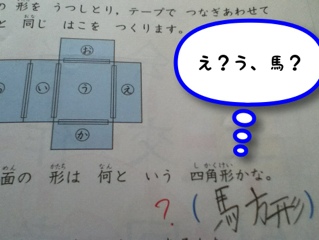 の 形 を うつしとり、テープで つなぎあわせて
と 同じ はこを つくります。
え?う、馬?
お
い う え
か
面の 形は 何と いう 四角形かな。
?(馬方形)